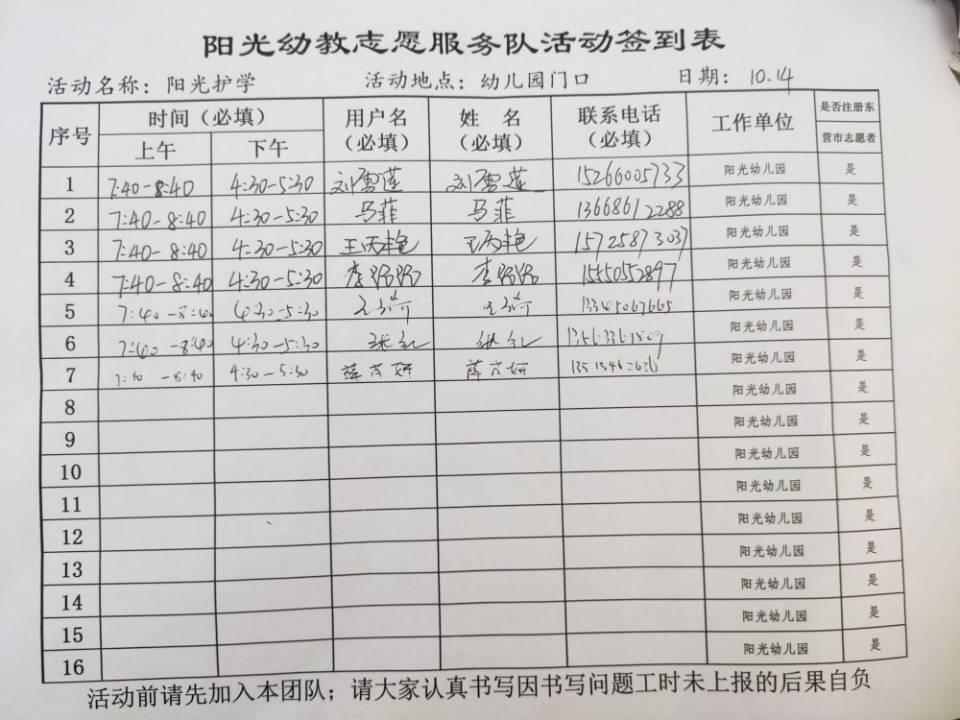 阳光幼教志愿服务队活动签到表
活动名称：阳光护学 活动地点：幼儿园门口 日期：10.14
序号 时间（必填） 用户名（必填） 姓 名（必填） 联系电话（必填） 工作单位 是否注册东营市志愿者
上午 下午
1 7:40-8:40 4:30-5:30 刘雪莲 刘雪莲 15266005733 阳光幼儿园 是
2 7:40-8:40 4:30-5:30 马菲 马菲 13668612288 阳光幼儿园 是
3 7:40-8:40 4:30-5:30 王丙艳 王丙艳 15725873037 阳光幼儿园 是
4 7:40-8:40 4:30-5:30 李 李 15550552897 阳光幼儿园 是
5 7:40-8:40 4:30-5:30 13345067665 阳光幼儿园 是
6 7:40-8:40 4:30-5:30 张红 张红 阳光幼儿园 是
7 7:40-8:40 4:30-5:30 薛 薛 阳光幼儿园 是
8 阳光幼儿园 是
9 阳光幼儿园 是
10 阳光幼儿园 是
11 阳光幼儿园 是
12 阳光幼儿园 是
13 阳光幼儿园 是
14 阳光幼儿园 是
15 阳光幼儿园 是
16 阳光幼儿园 是
活动前请先加入本团队；请大家认真书写因书写问题工时未上报的后果自负